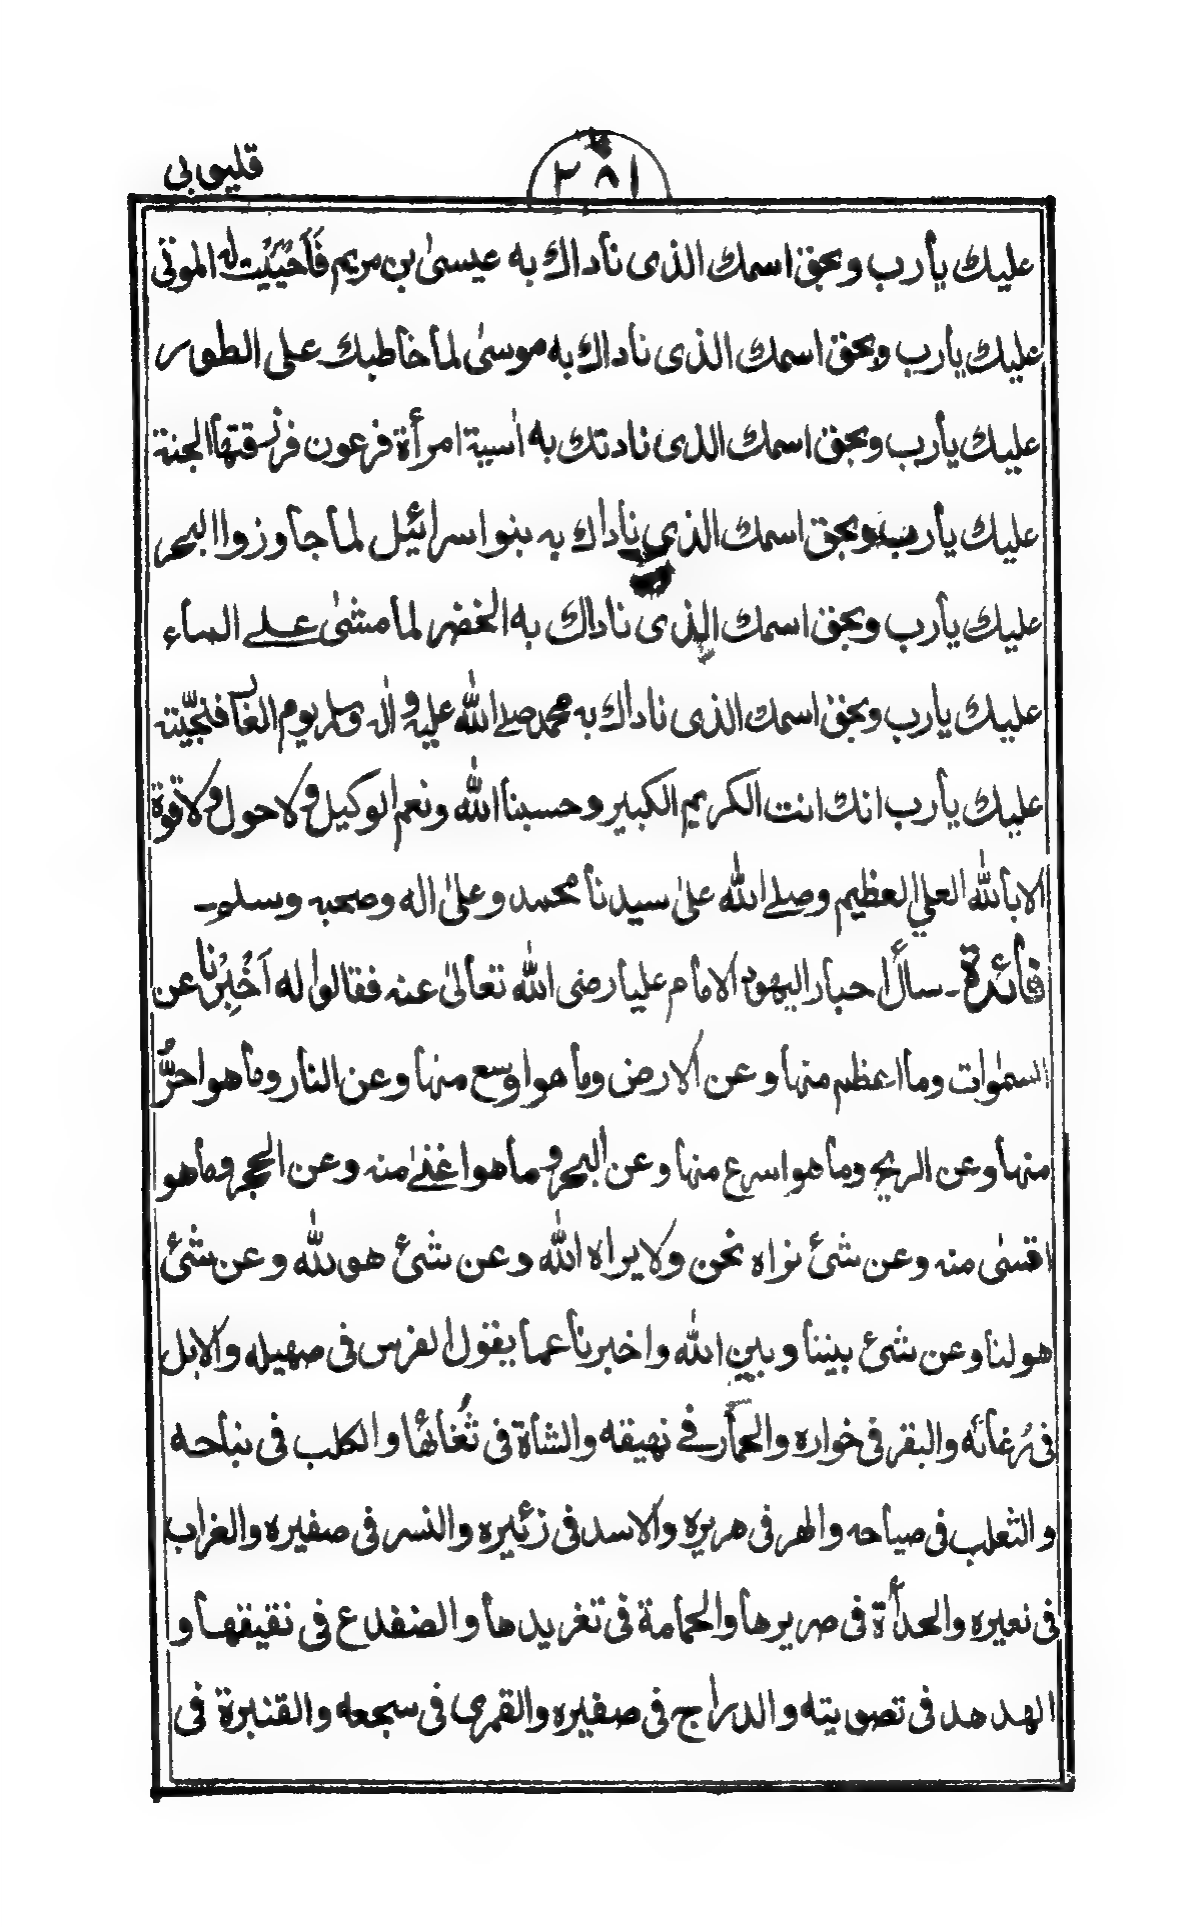 قليوبى
١٨٣
عليك يارب وبحق اسمك الذى ناداك به عيسىٰ بن مريم فَاَحْيَيْتَ له الموتى
عليك يارب وبحق اسمك الذى ناداك به موسىٰ لما خاطبك على الطور
عليك يارب وبحق اسمك الذى نادتك به اٰسية امرأة فرعون فرزقتها الجنة
عليك يارب وبحق اسمك الذى ناداك به بنو اسرائيل لما جاوزوا البحر
عليك يارب وبحق اسمك الذى ناداك به الخضر لما مشىٰ على الماء
عليك يارب وبحق اسمك الذى ناداك به محمد صلے الله عليه واٰله وسلم يوم الغار فنجّيته
عليك يارب انك انت الكريم الكبير وحسبنا الله ونعم الوكيل ولا حول ولا قوة
الا بالله العلي العظيم وصلے الله علىٰ سيدنا محمد وعلىٰ اله وصحبه وسلم۔
فائدة۔ سأل احبار اليهود الامام عليا رضى الله تعالىٰ عنه فقالوا له اَخْبِرْنا عن
السمٰوات وما اعظم منها وعن الارض وما هو اوسع منها وعن النار وما هو احرُّ
منها وعن الريح وما هو اسرع منها وعن البحر وما هو اغنےٰ منه وعن الحجر وما هو
اقسىٰ منه وعن شئ نراه نحن ولا يراه الله وعن شئ هو لله وعن شئ
هو لنا وعن شئ بيننا وبين الله واخبرنا عما يقول الفرس فى صهيله والابل
فى رُغائه والبقر فى خواره والحمار فے نهيقه والشاة فى ثُغائها والكلب فى نباحه
والثعلب فى صياحه والهر فى هريره والاسد فى زئيره والنسر فى صفيره والغراب
فى نعيره والحدأة فى صريرها والحمامة فى تغريدها والضفدع فى نقيقها و
الهدهد فى تصويته والدراج فى صفيره والقمرى فى سجعه والقنبرة فى